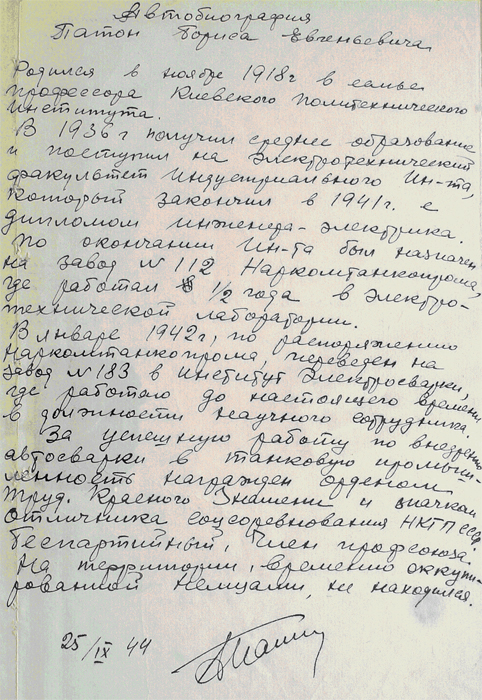 Автобиография
Патон Бориса Евгеньевича
Родился в ноябре 1918г в семье
профессора Киевского Политехнического
Института.
В 1936г получил среднее образование
и поступил на Электротехнический
факультет Индустриального Ин-та,
который закончил в 1941г. с
дипломом инженера-электрика.
По окончании Ин-та был назначен
на завод №112 Наркомтанкопрома,
где работал 1/2 года в электро-
технической лаборатории.
В январе 1942г, по распоряжению
Наркомтанкопрома, переведен на
завод №183 в Институт Электросварки,
где работаю до настоящего времени
в должности научного сотрудника.
За успешную работу по внедрению
автосварки в танковую промыш-
ленность награжден орденом
Труд. Красного Знамени и значком
отличника соцсоревнования НКТП СССР
беспартийный, член профсоюза.
На территории, временно оккупи-
рованной немцами, не находился.
25/IX 44